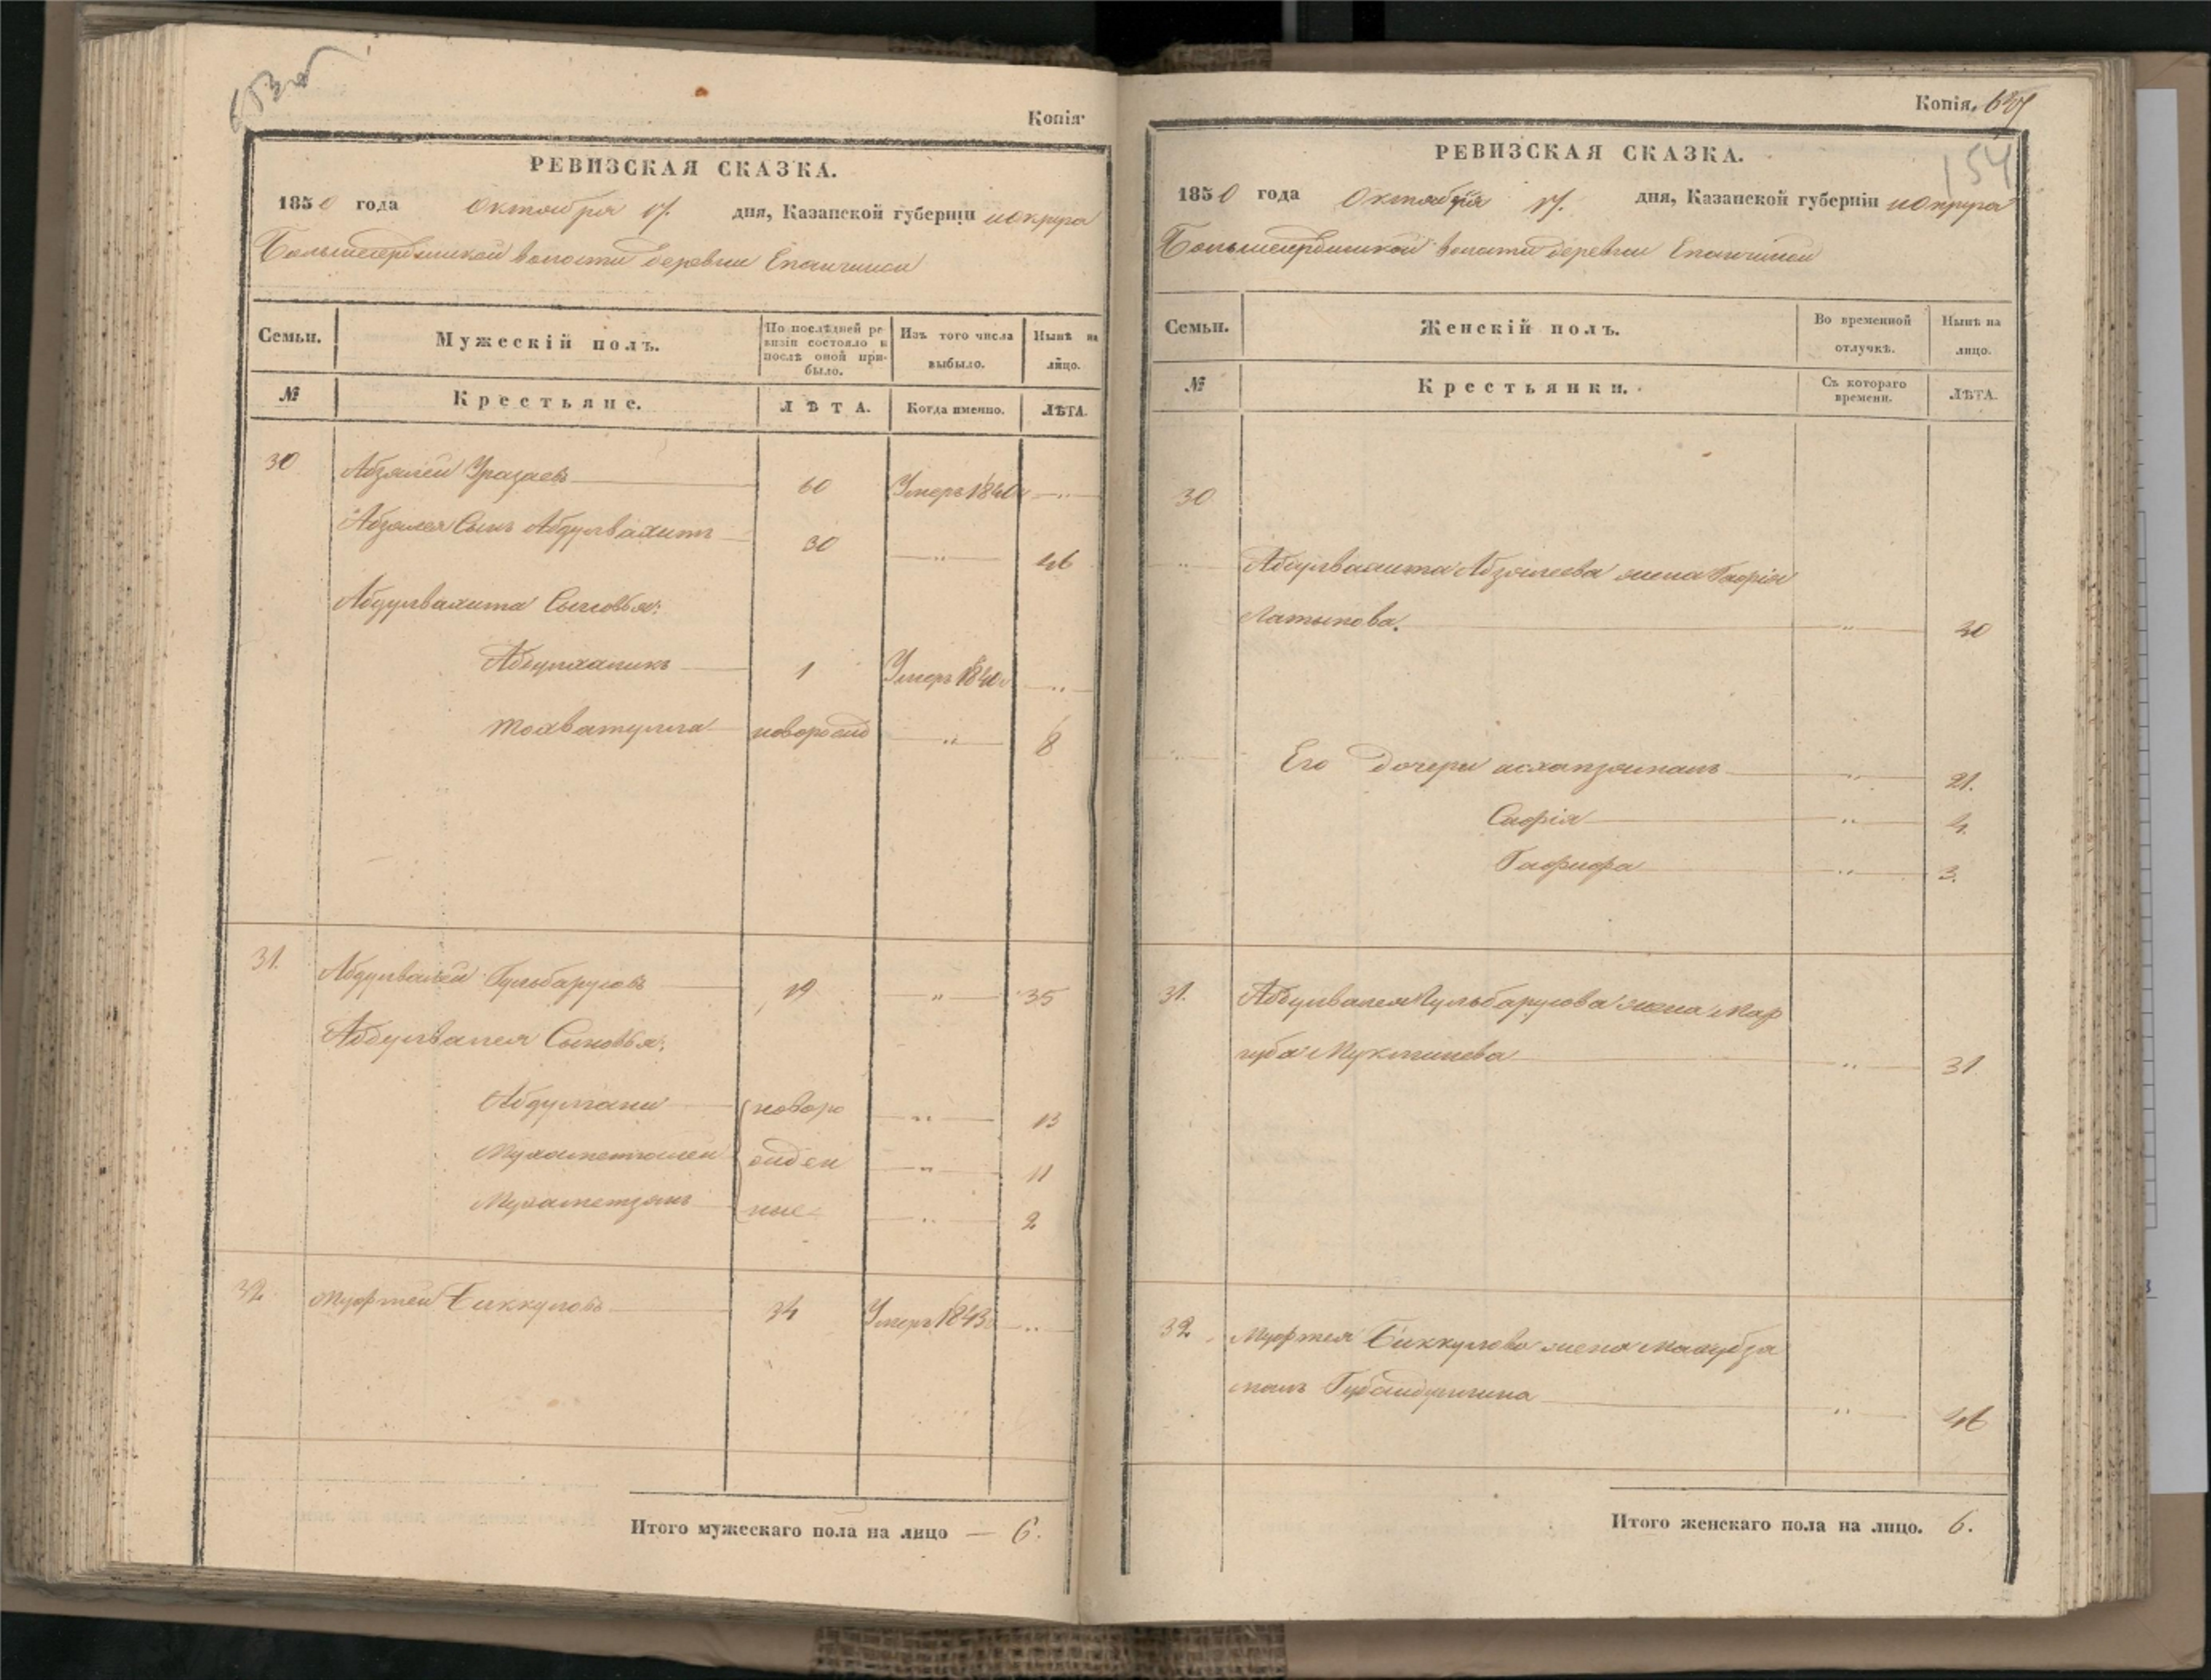 Копія
РЕВИЗСКАЯ СКАЗКА.
1850 года Октября 17. дня, Казанской губерніи и округа
Большеердынской волости деревни Епанчиной
Семьи. Мужескій полъ. По послѣдней ревизіи состояло и послѣ оной прибыло. Изъ того числа выбыло. Нынѣ на лицо.
№ Крестьяне. ЛѢТА. Когда именно. ЛѢТА.
30 Абзялей Уразаевъ 60 Умеръ 1840 „
Абзялея Сынъ Абдулвахитъ 30 „ 46
Абдулвахита Сыновья:
Абдулхаликъ 1 Умеръ 1840 „
Тохватулла новорожд „ 8
31. Абдулвалей Гульбарусовъ 19 „ 35
Абдулвалея Сыновья:
Абдулгани новоро „ 13
Мухаметгалей жден „ 11
Мухаметзянъ ные „ 2
32 Муфтей Биккуловъ 34 Умеръ 1843 „
Итого мужескаго пола на лицо — 6.
Копія.
154
РЕВИЗСКАЯ СКАЗКА.
1850 года Октября 17. дня, Казанской губерніи и округа
Большеердынской волости деревни Епанчиной
Семьи. Женскій полъ. Во временной отлучкѣ. Нынѣ на лицо.
№ Крестьянки. Съ котораго времени. ЛѢТА.
30
„ Абдулвахита Абзялеева жена Гафія
Латыпова. „ 40
„ Его дочери „ 21.
Сафія „ 4.
Гафифа „ 3.
31. Абдулвалея Гульбарусова жена Мах
губа Мукминева „ 31
32. Муфтея Биккулова жена Махубза
малъ Губайдуллина „ 46
Итого женскаго пола на лицо. 6.